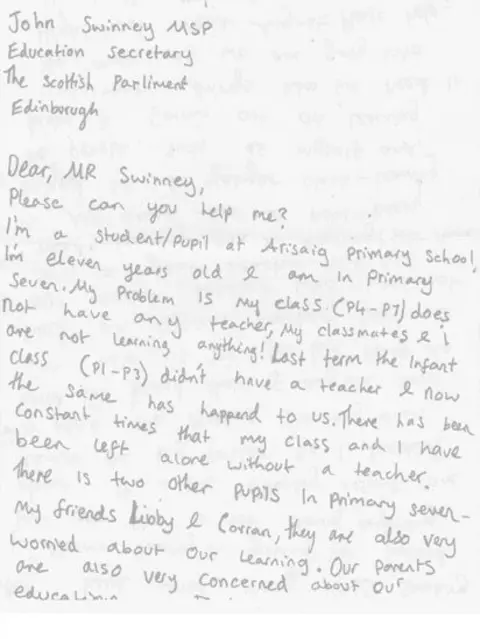 John Swinney MSP
Education secretary
The Scottish Parliment
Edinborugh
Dear, MR Swinney,
Please can you help me?
I'm a student/pupil at Arisaig Primary School,
I'm eleven years old & am in Primary
Seven. My Problem is my class (P4-P7) does
not have any teacher, My classmates & i
are not learning anything! Last term the infant
class (P1-P3) didn't have a teacher & now
the same has happend to us. There has been
constant times that my class and I have
been left alone without a teacher.
There is two other pupils in Primary seven-
My friends Libby & Corran, they are also very
worried about our learning. Our parents
are also very concerned about our